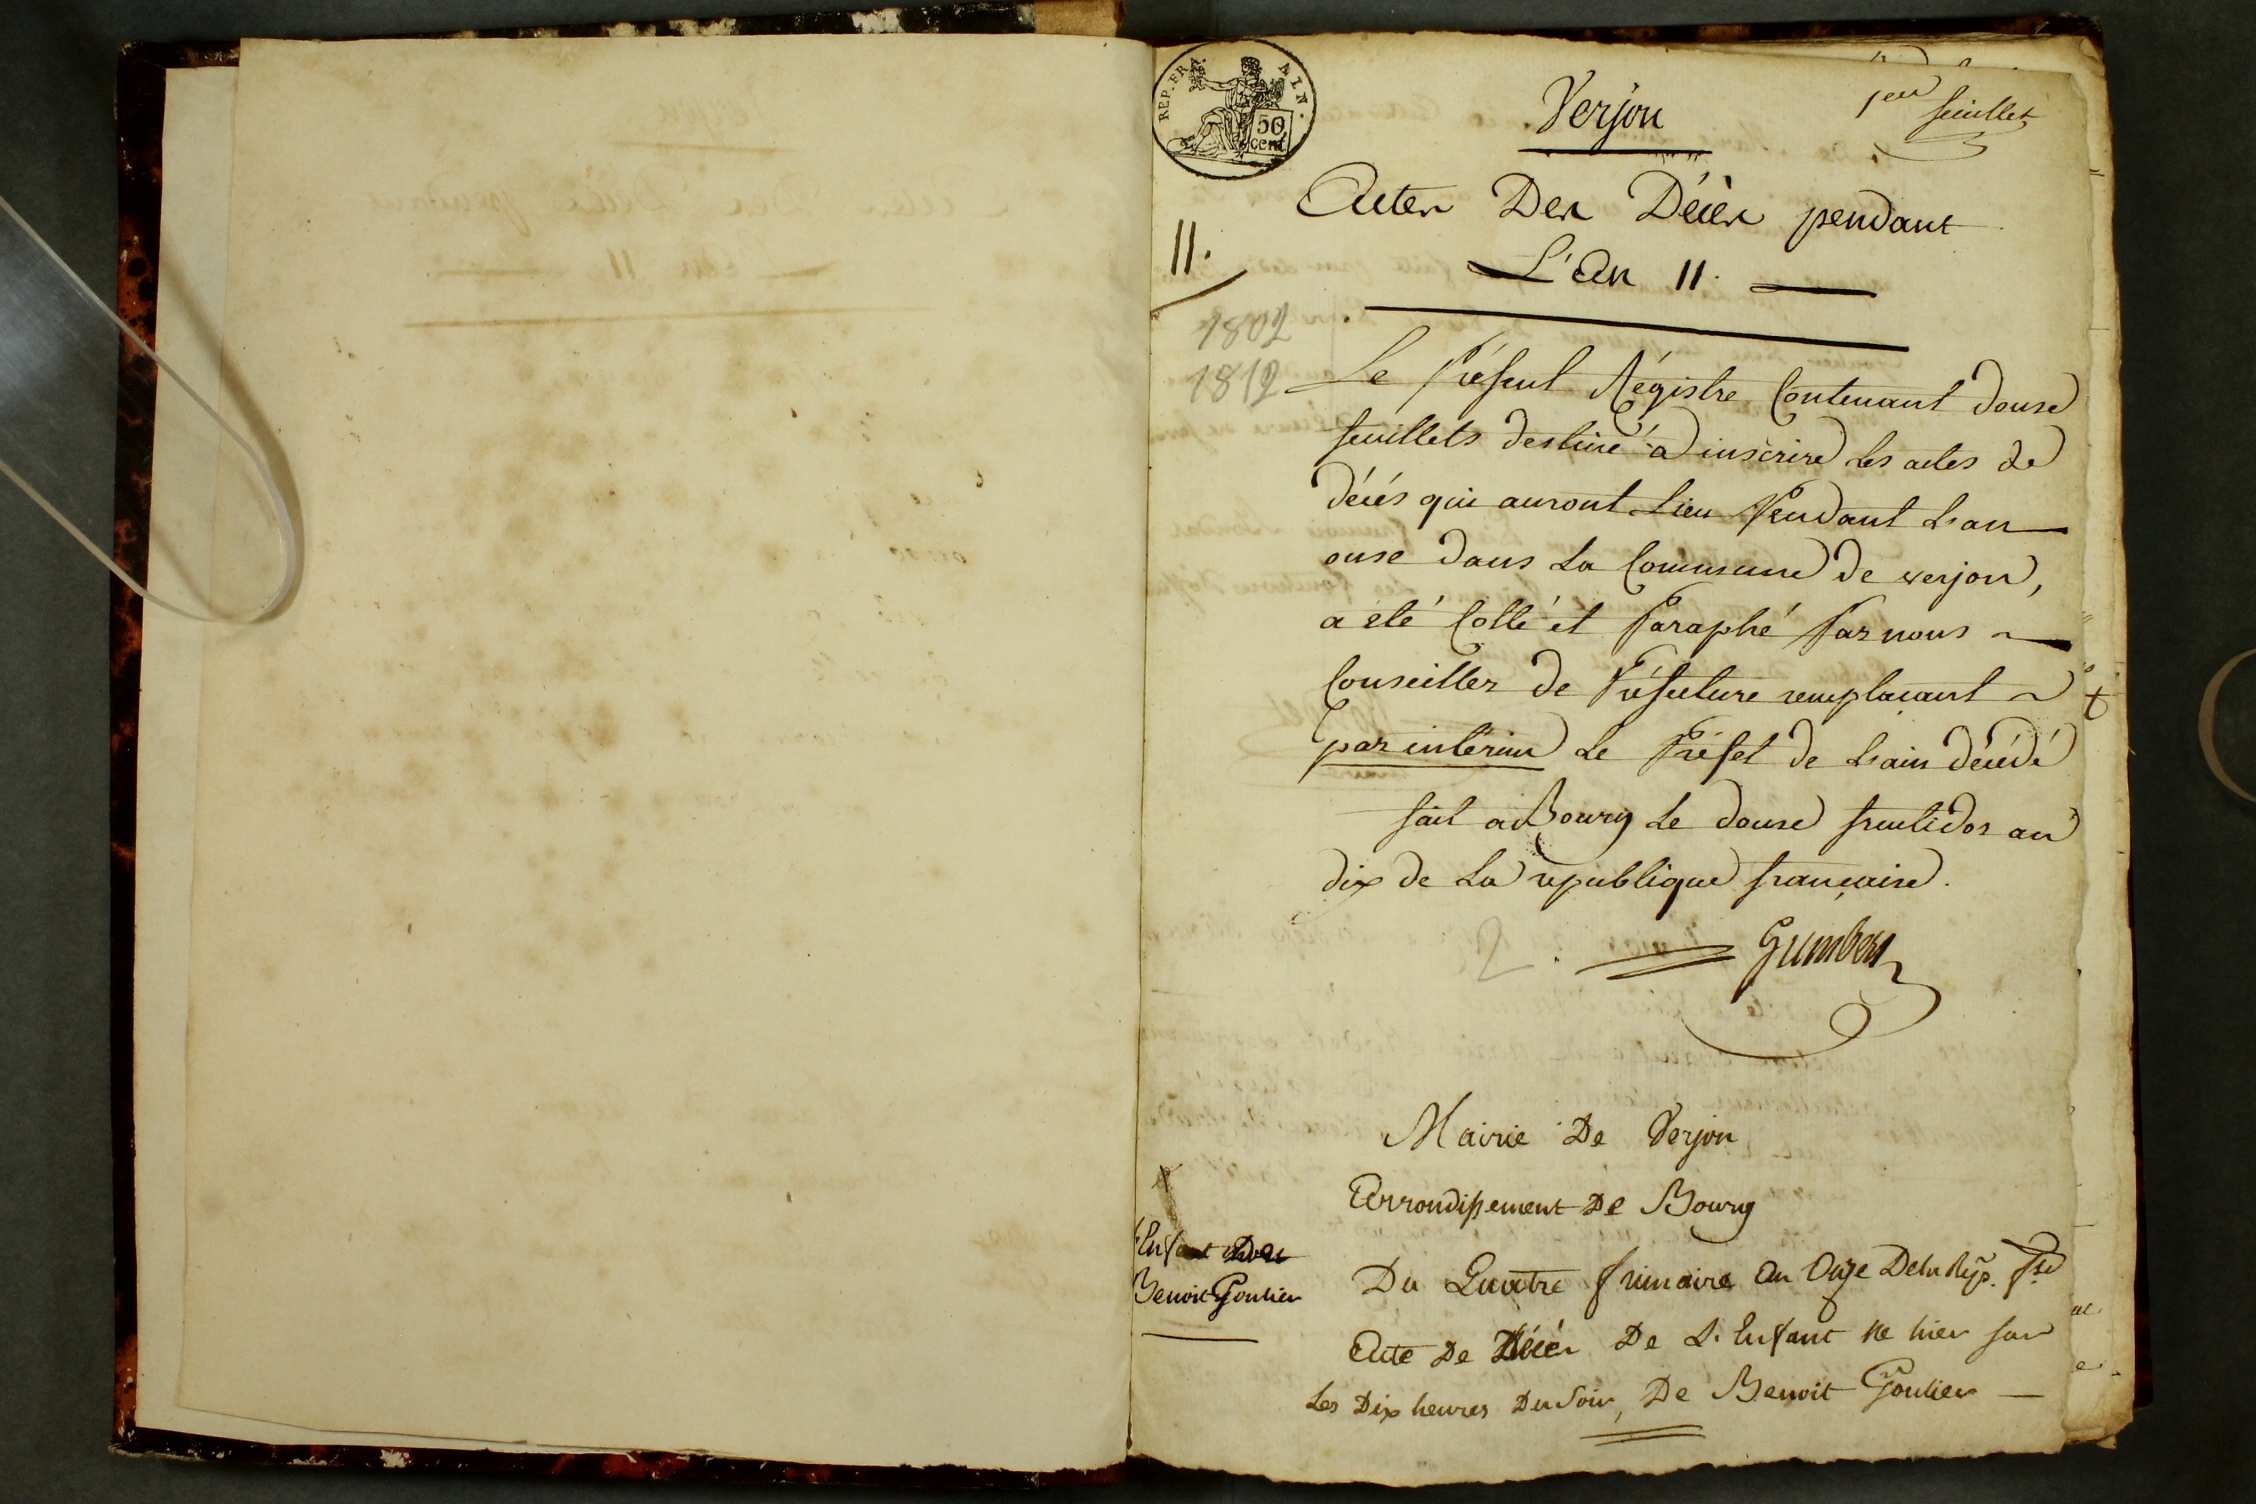 REP. FRA. AIN.
50
cent
1er
feuillet
Verjon
Actes Des Décès pendant
L'An 11.
11.
1802
1812
Le Présent Régistre Contenant douse
feuillets destiné à inscrire les actes de
décés qui auront Lieu Pendant L'an
onse dans La Commune de verjon,
a été Cotté et Paraphé Par nous
Conseiller de Préfecture remplaçant
par interim Le Préfet de L'ain décédé
fait a Bourg Le douse fructidor an
dix de La republique française.
2.
Mairie De Verjon
Arrondissement De Bourg
Enfant
Benoit Goulier
Du Quatre frimaire An Onze De la Rép. fse
Acte De Décès De L'Enfant né hier sur
Les Dix heures Du Soir, De Benoit Goulier